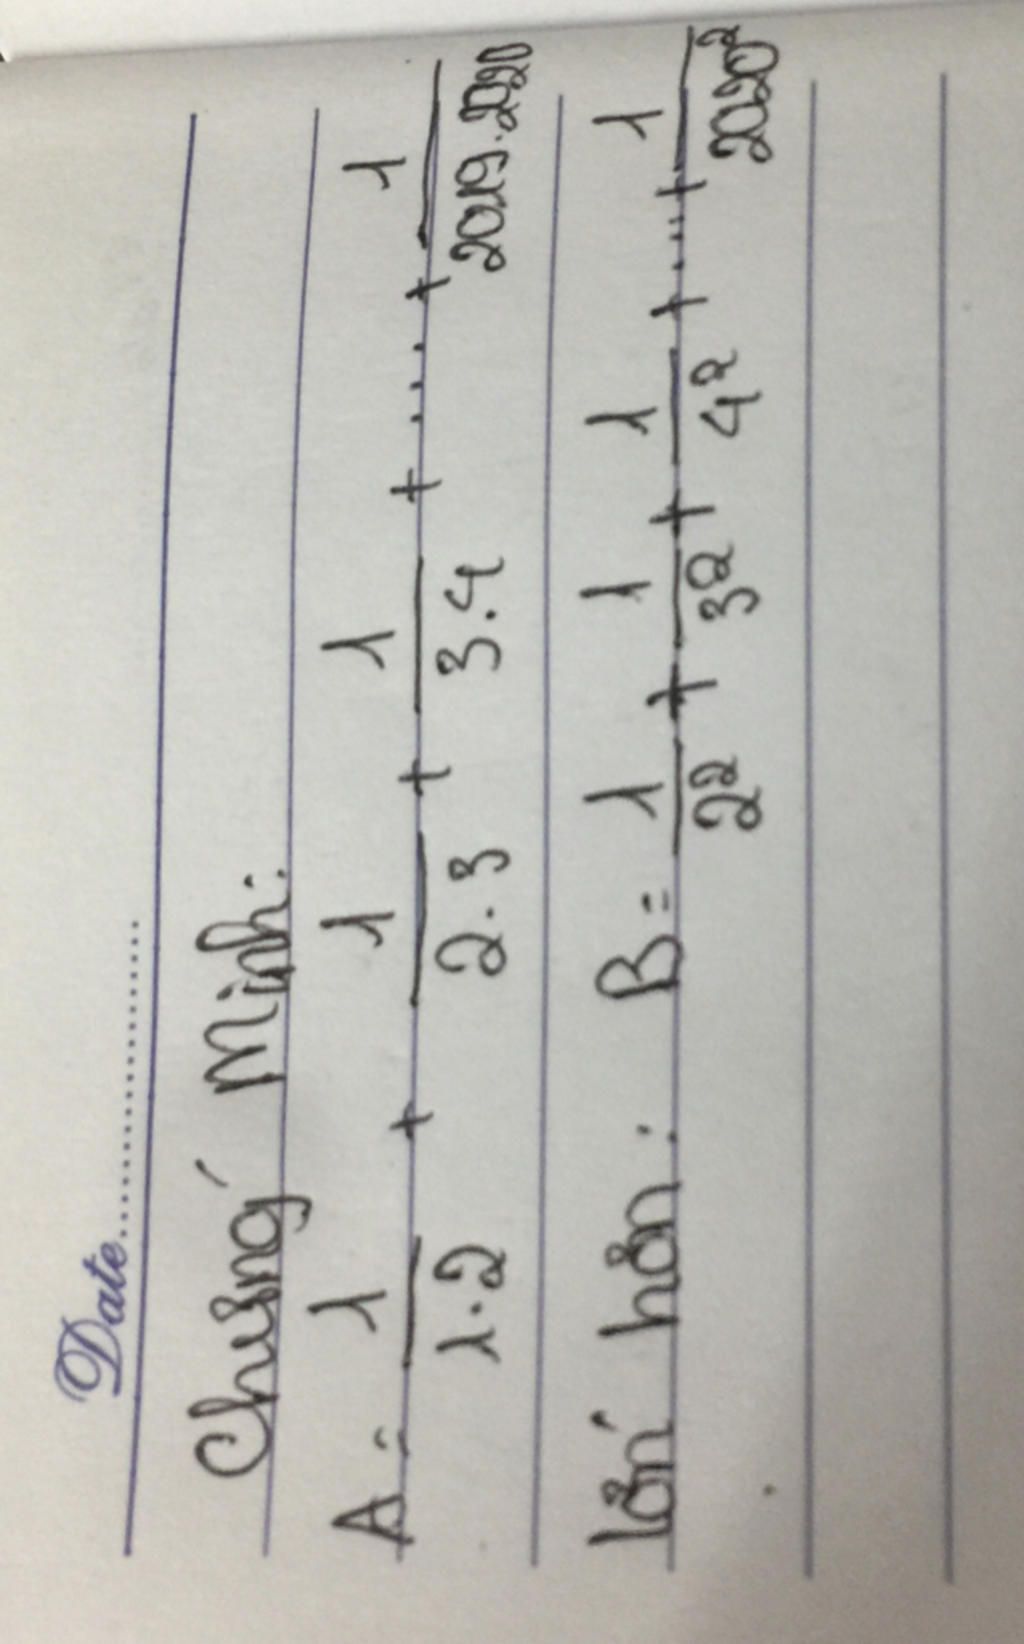 Date....................
Chứng Minh:
A = 1/1.2 + 1/2.3 + 1/3.4 + .... + 1/2019.2020
lớn hơn: B = 1/2² + 1/3² + 1/4² + .... + 1/2020²